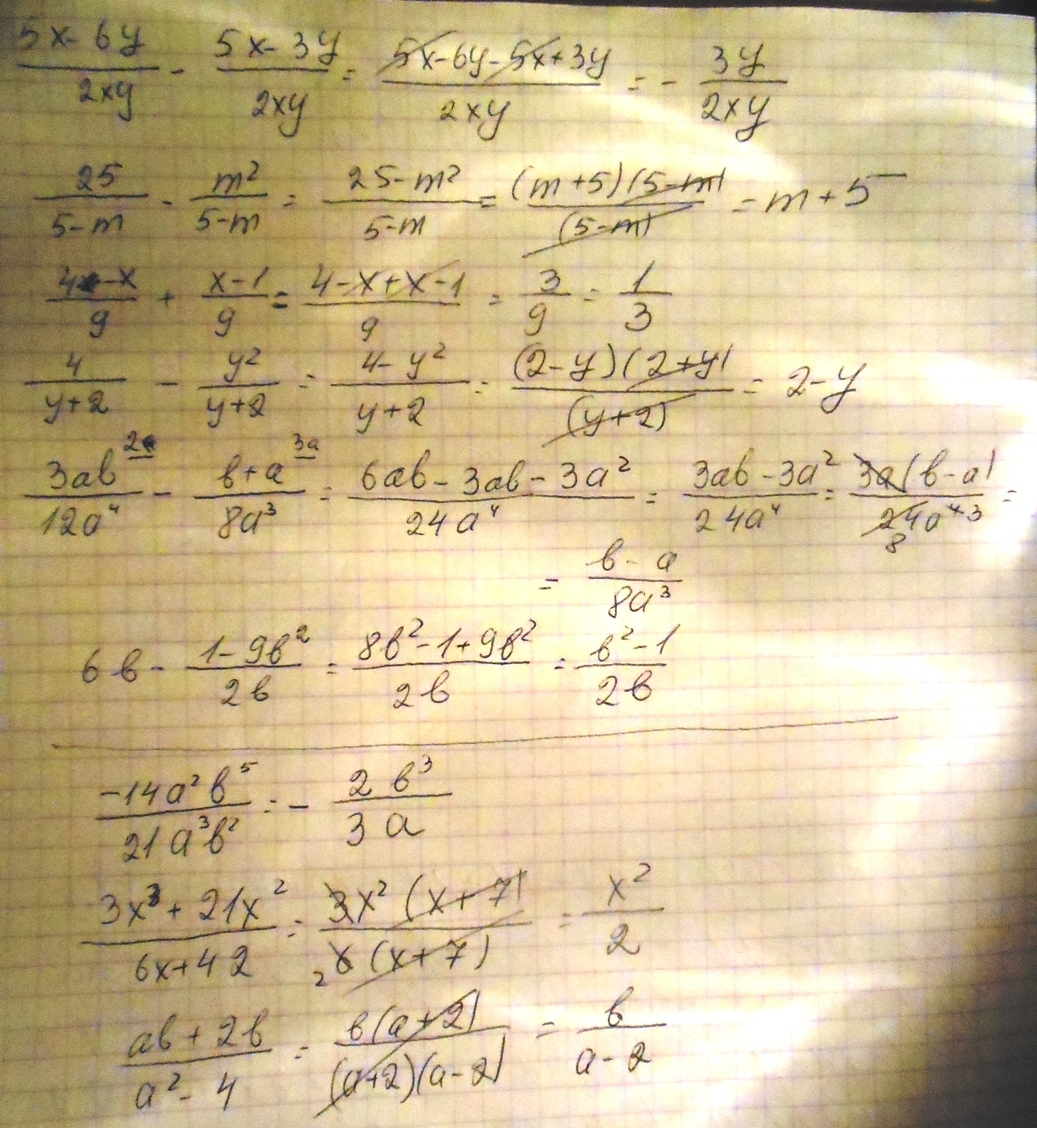 (5x-6y)/(2xy) - (5x-3y)/(2xy) = (5x-6y-5x+3y)/(2xy) = - (3y)/(2xy)
25/(5-m) - m²/(5-m) = (25-m²)/(5-m) = (m+5)(5-m)/(5-m) = m+5
(4-x)/9 + (x-1)/9 = (4-x+x-1)/9 = 3/9 = 1/3
4/(y+2) - y²/(y+2) = (4-y²)/(y+2) = (2-y)(2+y)/(y+2) = 2-y
3ab/(12a⁴) - (в+a)/(8a³) ^3a = (6aв-3aв-3a²)/(24a⁴) = (3aв-3a²)/(24a⁴) = 3a(в-a)/(24a⁴) 8 3 =
= (в-a)/(8a³)
6в - (1-9в²)/(2в) = (8в²-1+9в²)/(2в) = (в²-1)/(2в)
(-14a²в⁵)/(21a³в²) = - (2в³)/(3a)
(3x³+21x²)/(6x+42) = 3x²(x+7)/(6(x+7)) 2 = x²/2
(aв+2в)/(a²-4) = в(a+2)/((a+2)(a-2)) = в/(a-2)